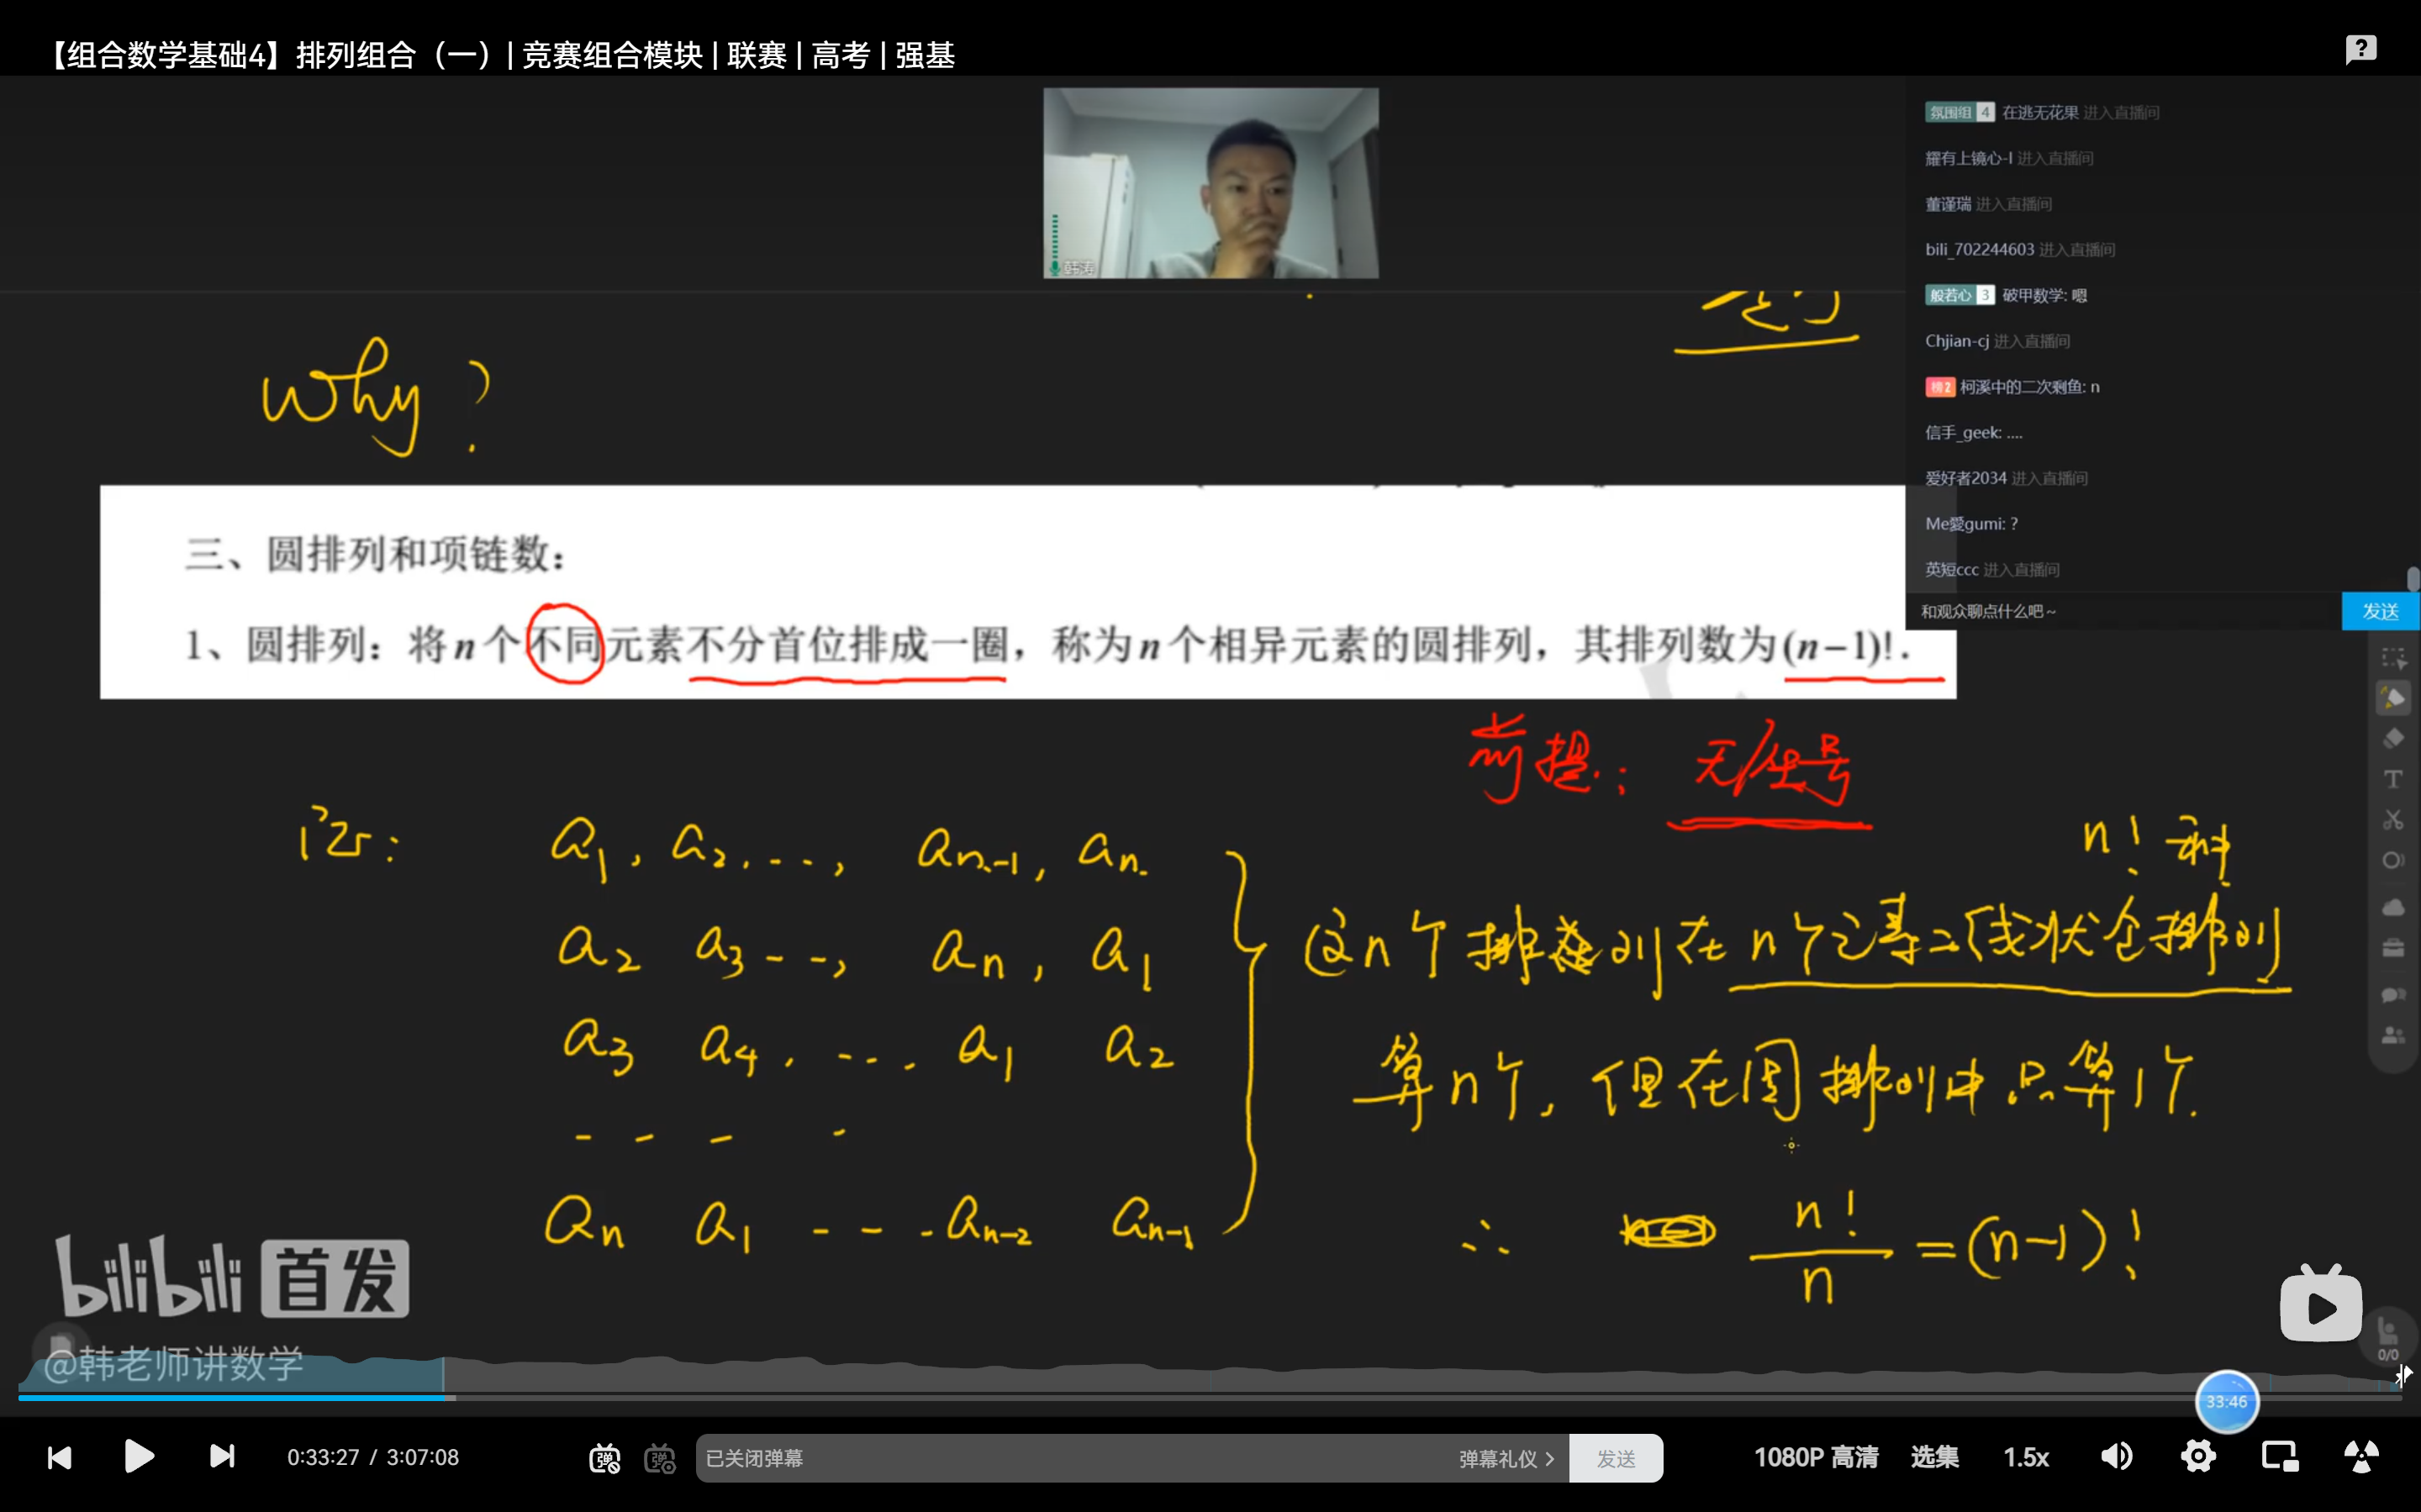 【组合数学基础4】排列组合（一）| 竞赛组合模块 | 联赛 | 高考 | 强基
氛围组 4 在逃无花果 进入直播间
耀有上镜心-I 进入直播间
董谨瑞 进入直播间
bili_702244603 进入直播间
般若心 3 破甲数学: 嗯
Chjian-cj 进入直播间
榜2 柯溪中的二次剩鱼: n
信手_geek: ....
爱好者2034 进入直播间
Me愛gumi: ?
英短ccc 进入直播间
和观众聊点什么吧~
发送
韩涛
why?
三、圆排列和项链数：
1、圆排列：将n个不同元素不分首位排成一圈，称为n个相异元素的圆排列，其排列数为(n−1)!.
前提: 无座号
证:
a1, a2, ..., an-1, an.
a2 a3 --, an, a1
a3 a4, ---. a1 a2
- - - -
an a1 --- . an-2 an-1
n! 种
这n个排列在n个元素线状全排列
算n个, 但在圆排列中只算1个.
∴ n!/n = (n-1)!
bilibili 首发
@韩老师讲数学
0/0
33:46
0:33:27 / 3:07:08
弹
弹
已关闭弹幕
弹幕礼仪 >
发送
1080P 高清
选集
1.5x